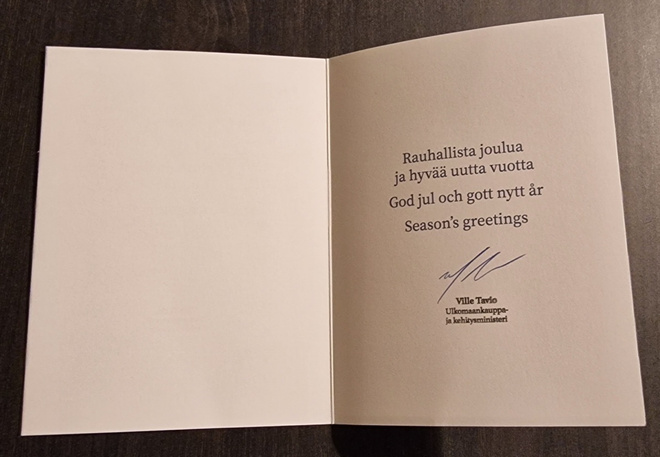 Rauhallista joulua
ja hyvää uutta vuotta
God jul och gott nytt år
Season's greetings
Ville Tavio
Ulkomaankauppa-
ja kehitysministeri